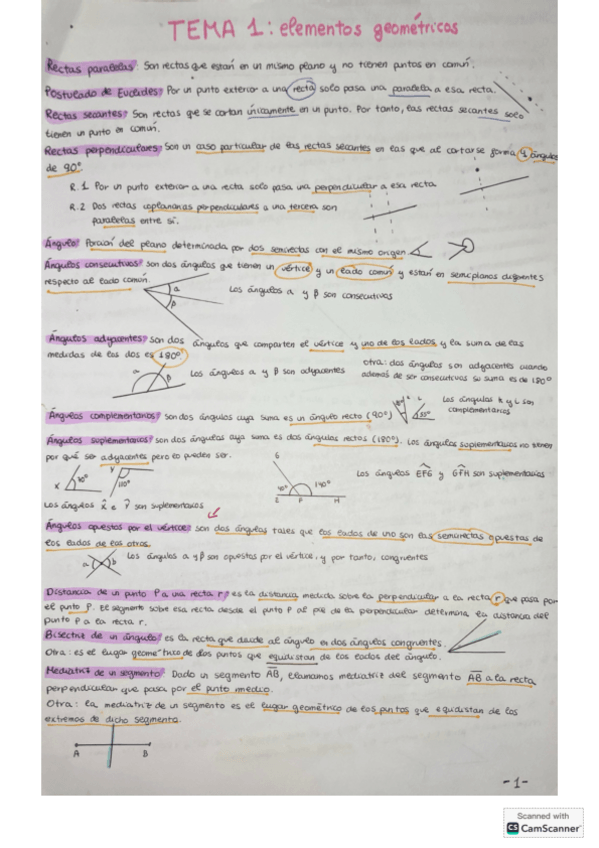 TEMA 1: elementos geométricos
Rectas paralelas: Son rectas que están en un mismo plano y no tienen puntos en común.
Postulado de Euclides: Por un punto exterior a una recta solo pasa una paralela a esa recta.
Rectas secantes: Son rectas que se cortan únicamente en un punto. Por tanto, las rectas secantes solo
tienen un punto en común.
Rectas perpendiculares: Son un caso particular de las rectas secantes en las que al cortarse forma 4 ángulos
de 90º
R.1 Por un punto exterior a una recta solo pasa una perpendicular a esa recta
R.2 Dos rectas coplanarias perpendiculares a una tercera son
paralelas entre sí.
Ángulo: Porción del plano determinada por dos semirectas con el mismo origen
Ángulos consecutivos: son dos ángulos que tienen un vértice y un lado común y están en semiplanos diferentes
respecto al lado común.
a
β
Los ángulos a y β son consecutivos
Ángulos adyacentes: son dos ángulos que comparten el vértice y uno de los lados y la suma de las
medidas de los dos es 180º
a
β
Los ángulos a y β son adyacentes
Otra: dos ángulos son adyacentes cuando
además de ser consecutivos su suma es de 180º
Ángulos complementarios: son dos ángulos cuya suma es un ángulo recto (90º)
Los ángulos K y L son
complementarios
Ángulos suplementarios: son dos ángulos cuya suma es dos ángulos rectos (180º). Los ángulos suplementarios no tienen
por qué ser adyacentes pero lo pueden ser.
X
Y
110º
G
40º
140º
E F H
Los ángulos EFG y GFH son suplementarios
Los ángulos X e Y son suplementarios
Ángulos opuestos por el vértice: son dos ángulos tales que los lados de uno son las semirectas opuestas de
los lados de los otros.
a
b
Los ángulos a y β son opuestos por el vértice, y por tanto, congruentes
Distancia de un punto P a una recta r: es la distancia medida sobre la perpendicular a la recta r que pasa por
el punto P. El segmento sobre esa recta desde el punto P al pie de la perpendicular determina la distancia del
punto P a la recta r.
Bisectriz de un ángulo: es la recta que divide al ángulo en dos ángulos congruentes.
Otra: es el lugar geométrico de los puntos que equidistan de los lados del ángulo.
Mediatriz de un segmento: Dado un segmento AB, llamamos mediatriz del segmento AB a la recta
perpendicular que pasa por el punto medio.
Otra: la mediatriz de un segmento es el lugar geométrico de los puntos que equidistan de los
extremos de dicho segmento.
A B
-1-
Scanned with
CS CamScanner